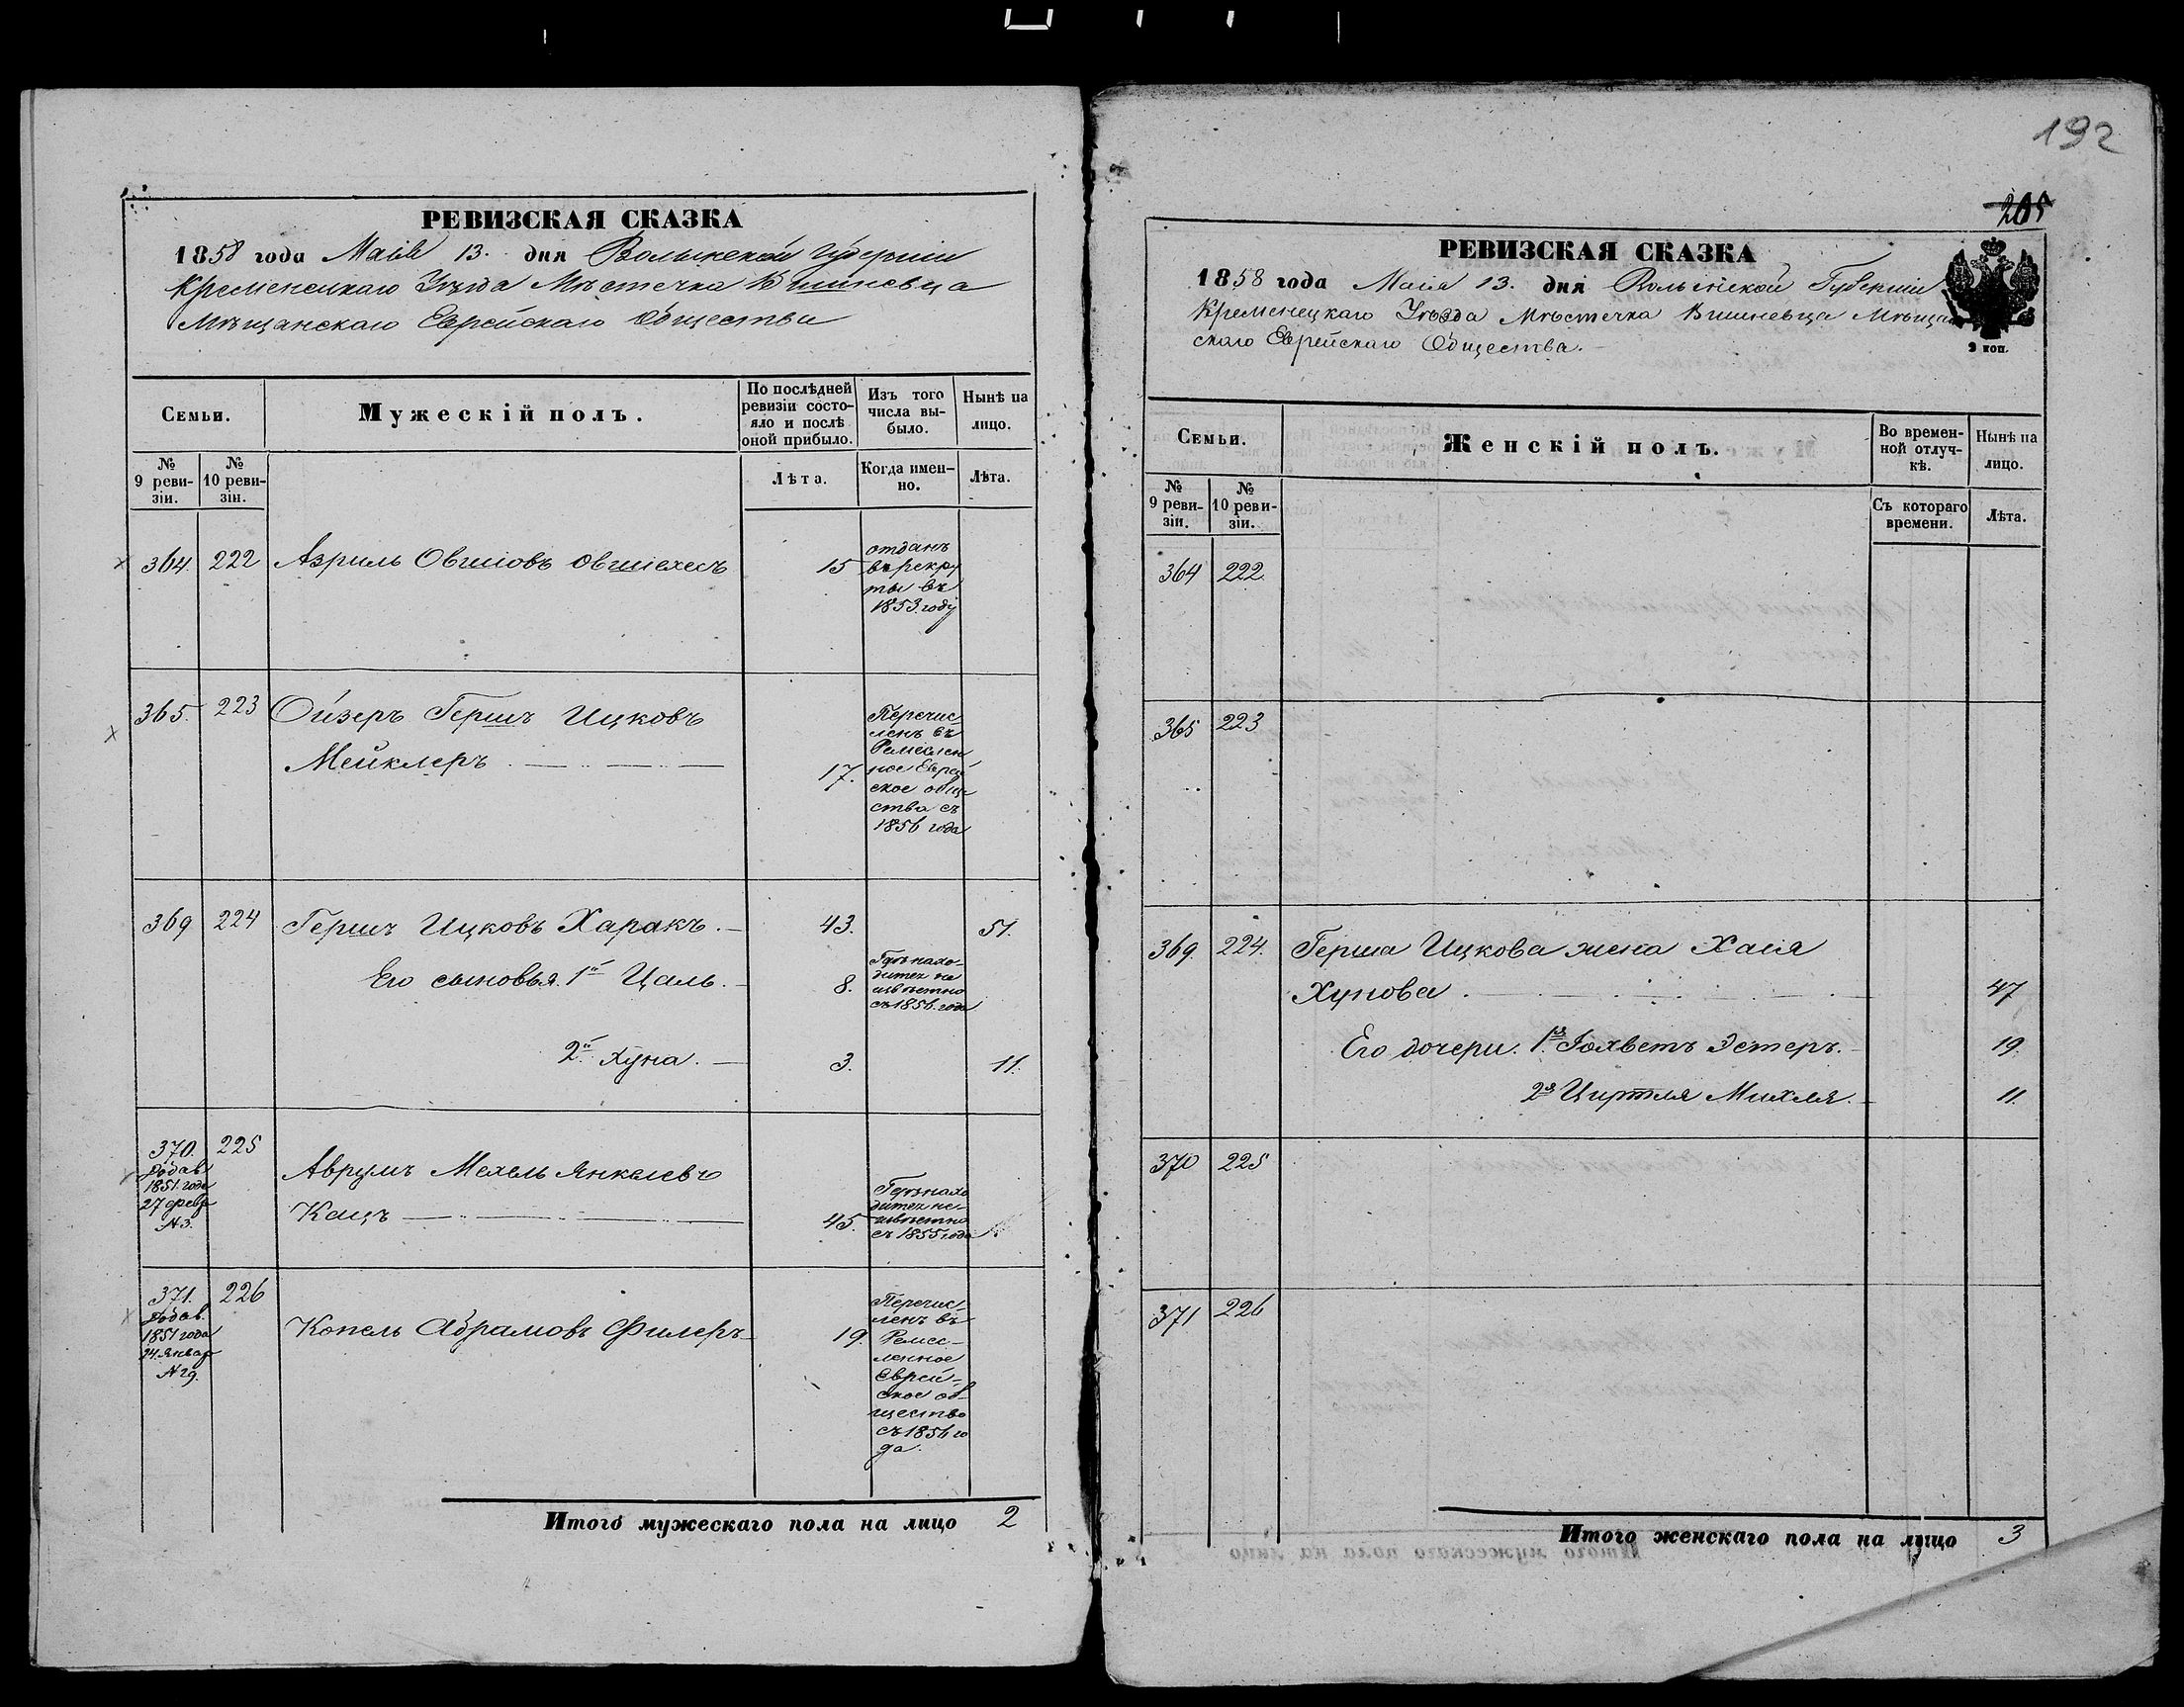 192
205
РЕВИЗСКАЯ СКАЗКА
1858 года Маія 13. дня Волынской Губерніи
Кременецкаго Уѣзда Мѣстечка Вишневца
Мѣщанскаго Еврейскаго Общества
Семьи.
Мужескій полъ.
По послѣдней ревизіи состояло и послѣ оной прибыло.
Изъ того числа выбыло.
Нынѣ на лицо.
№ 9 ревизіи.
№ 10 ревизіи.
Лѣта.
Когда именно.
Лѣта.
364. 222 Азриль Овшіовъ Овшіехесъ 15
отданъ
въ рекру
ты въ
1853. году
365. 223 Ойзеръ Гершъ Ицковъ
Мейклеръ 17.
Перечис-
ленъ въ
Ремеслен
ное Еврей
ское обще
ства съ
1856 года
369 224 Гершъ Ицковъ Харакъ. 43. 51.
Его сыновья. 1й Цаль. 8.
Гдѣ нахо-
дится не
извѣстно
съ 1856. года
2й Хуна. 3. 11.
370. 225
Добав.
1851. года
27 февр
№ 3.
Аврумъ Мехель Янкелевъ
Кацъ 45.
Гдѣ нахо
дится не-
извѣстно
съ 1855 года
371. 226
Добав.
1851 года
24. Январ
№ 29.
Копель Абрамовъ Филеръ 19.
Перечис-
ленъ въ
Ремес-
ленное
Еврей-
ское об-
щество
съ 1856 го
да.
Итого мужескаго пола на лицо 2
РЕВИЗСКАЯ СКАЗКА
1858 года Маія 13. дня Волынской Губерніи
Кременецкаго Уѣзда Мѣстечка Вишневца Мѣщан
скаго Еврейскаго Общества.
9 коп.
Семьи.
Женскій полъ.
Во временной отлучкѣ.
Нынѣ на лицо.
№ 9 ревизіи.
№ 10 ревизіи.
Съ котораго времени.
Лѣта.
364 222.
365 223
369. 224. Герша Ицкова жена Хаія
Хунова. 47
Его дочери. 1я Іохветъ Эстеръ. 19.
2я Циртля Михля. 11.
370 225
371 226
Итого женскаго пола на лицо 3